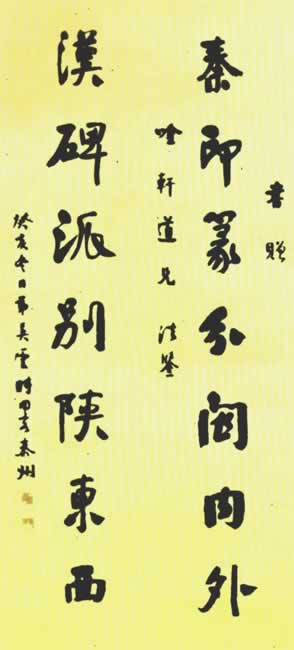 書贈
秦印篆分閫內外
唫軒道兄 法鑒
漢碑派別陝東西
癸亥冬日弟吳雲時同客泰州